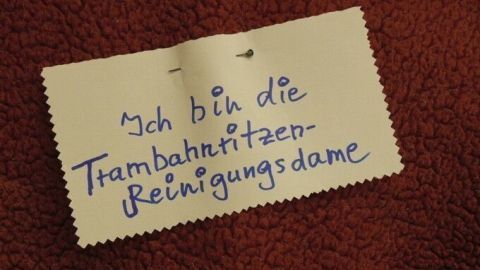 Ich bin die
Trambahnritzen-
Reinigungsdame